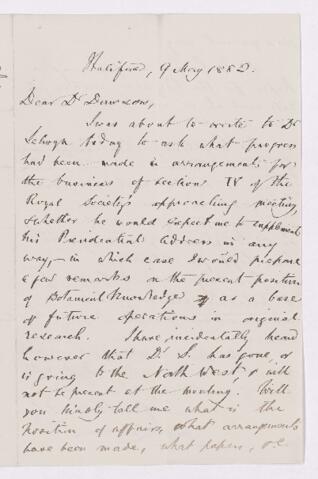 Halifax, 9 May 1882.
Dear Dr Dawson,
I was about to write to Dr
Selwyn today to ask what progress
had been made in arrangements for
the business of section IV of the
Royal Society's approaching meeting,
& whether he would expect me to supplement
his Presidential Address in any
way, – in which case I would prepare
a few remarks on the present position
of Botanical Knowledge as a base
of future operations in original
research. I have incidentally heard
however that Dr. S. has gone, or
is going to the North West, & will
not be present at the meeting. Will
you kindly tell me what is the
position of affairs, what arrangements
have been made, what papers, &c.